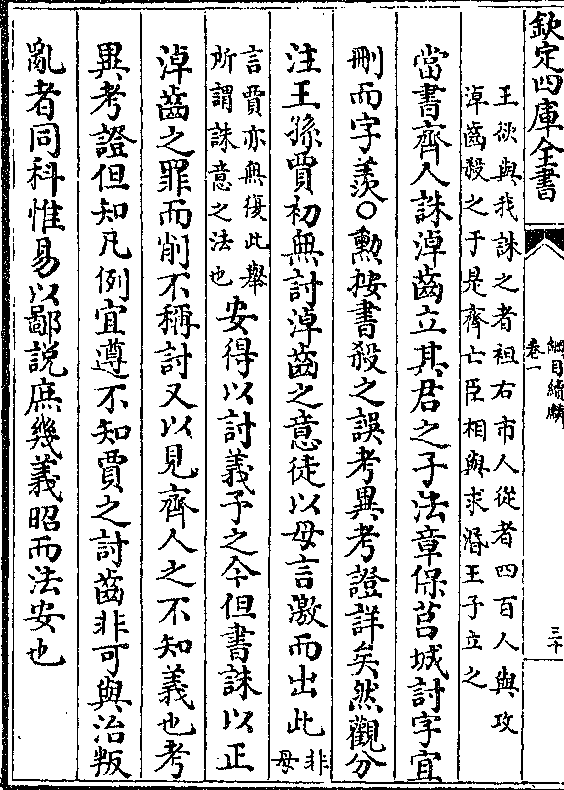 欽定四庫全書
綱目續麟
卷一
三十
王欲與我誅之者袒右市人從者四百人與攻
淖齒殺之于是齊亡臣相與求湣王子立之
當書齊人誅淖齒立其君之子法章保莒城討字宜
刪而字羨○勲按書殺之誤考異考證詳矣然觀分
注王孫賈初無討淖齒之意徒以母言激而出此非母
言賈亦無復此舉
所謂誅意之法也
安得以討義予之今但書誅以正
淖齒之罪而削不稱討又以見齊人之不知義也考
異考證但知凡例宜遵不知賈之討齒非可與治叛
亂者同科惟易以鄙說庶幾義昭而法安也